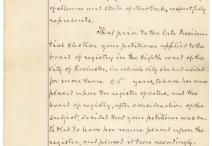 of Monroe and State of New York, respectfully
represents:
That prior to the late Presiden-
tial Election your petitioner applied to the
board of registry in the Eighth ward of the
City of Rochester, in which city she had resided
for more than 25 years, to have her name
placed upon the register of voters, and the
board of registry, after consideration of the
subject, decided that your petitioner was en-
titled to have her name placed upon the
register, and placed it there accordingly.